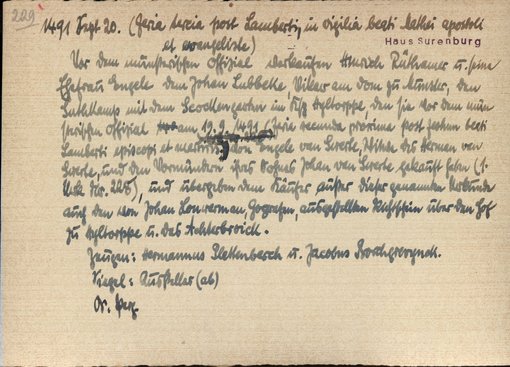 229
1491 Sept 20. (feria tercia post Lamberti, in vigilia beati Mathei apostoli
et evangeliste)
Haus Surenburg
Vor dem münsterischen Offizial verkaufen Hinrick u. seine
Ehefrau Engele dem Johan Lubbeke, Vikar am Dom zu Münster, den
mit dem im Ksp. den sie vor dem mün-
sterischen Offizial am 19.9.1491 (feria secunda proxima post festum beati
Lamberti episcopi et martiris) von Engele van Swerte, Witwe des Herman van
Swerte, und den Vormündern ihres Sohnes Johan van Swerte gekauft haben (s.
Urk. Nr. 228), und übergeben dem Käufer außer dieser genannten Urkunde
auch den von Johan Gografen, ausgestellten über den Hof
zu u. das Achterbroick.
Zeugen: Hermannus Plettenbrach u. Jacobus
Siegel: Aussteller (ab)
Or. Perg.